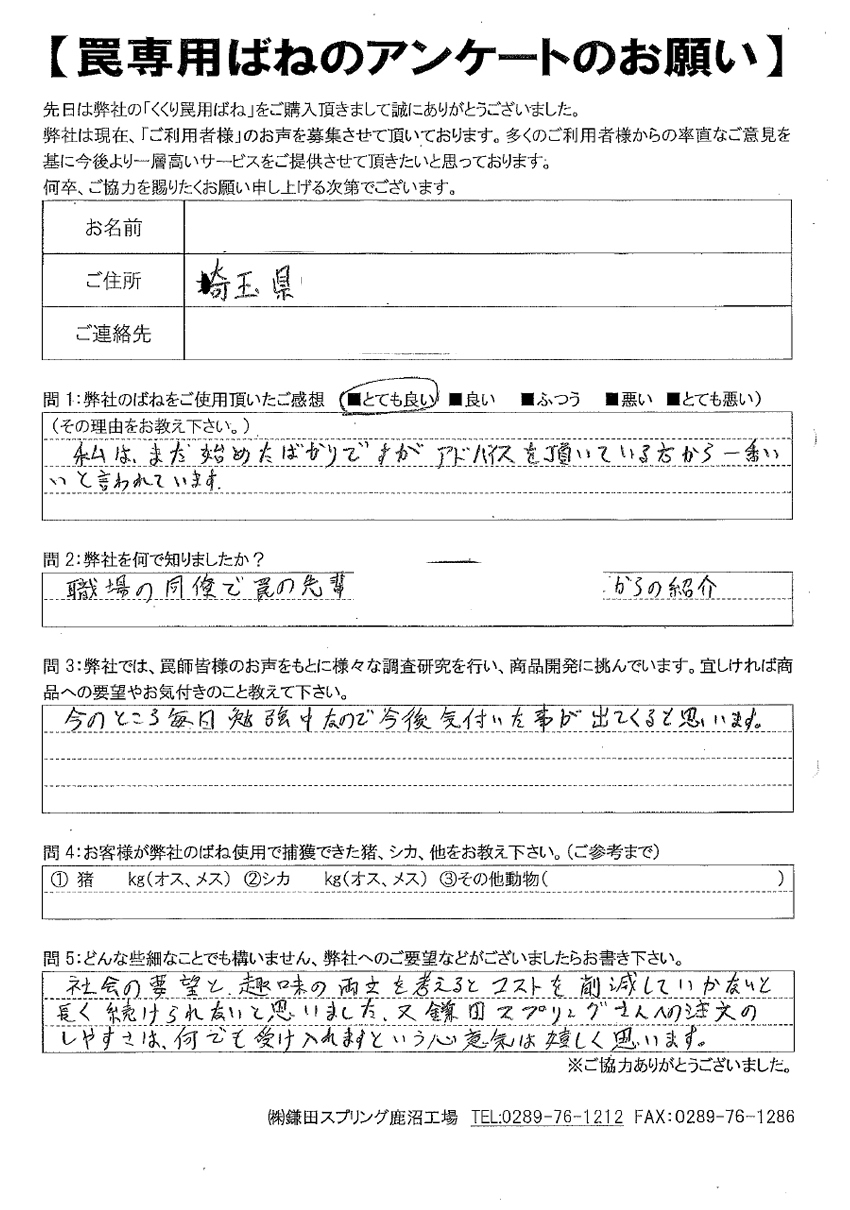 【罠専用ばねのアンケートのお願い】
先日は弊社の「くくり罠用ばね」をご購入頂きまして誠にありがとうございました。
弊社は現在、「ご利用者様」のお声を募集させて頂いております。多くのご利用者様からの率直なご意見を
基に今後より一層高いサービスをご提供させて頂きたいと思っております。
何卒、ご協力を賜りたくお願い申し上げる次第でございます。
お名前
ご住所 埼玉県
ご連絡先
問1：弊社のばねをご使用頂いたご感想 （■とても良い ■良い ■ふつう ■悪い ■とても悪い）
（その理由をお教え下さい。）
私は、まだ始めたばかりですが アドバイスを頂いている方から一番い
いと言われています。
問2：弊社を何で知りましたか？
職場の同僚で罠の先輩 からの紹介
問3：弊社では、罠師皆様のお声をもとに様々な調査研究を行い、商品開発に挑んでいます。宜しければ商
品への要望やお気付きのこと教えて下さい。
今のところ毎日勉強中なので今後気付いた事が出てくると思います。
問4：お客様が弊社のばね使用で捕獲できた猪、シカ、他をお教え下さい。（ご参考まで）
① 猪 kg（オス、メス） ②シカ kg（オス、メス） ③その他動物（ ）
問5：どんな些細なことでも構いません、弊社へのご要望などがございましたらお書き下さい。
社会の要望と、趣味の両立を考えるとコストを削減していかないと
長く続けられないと思いました、又鎌田スプリングさんへの注文の
しやすさは、何でも受け入れますという心意気は嬉しく思います。
※ご協力ありがとうございました。
㈱鎌田スプリング鹿沼工場 TEL:0289-76-1212 FAX:0289-76-1286